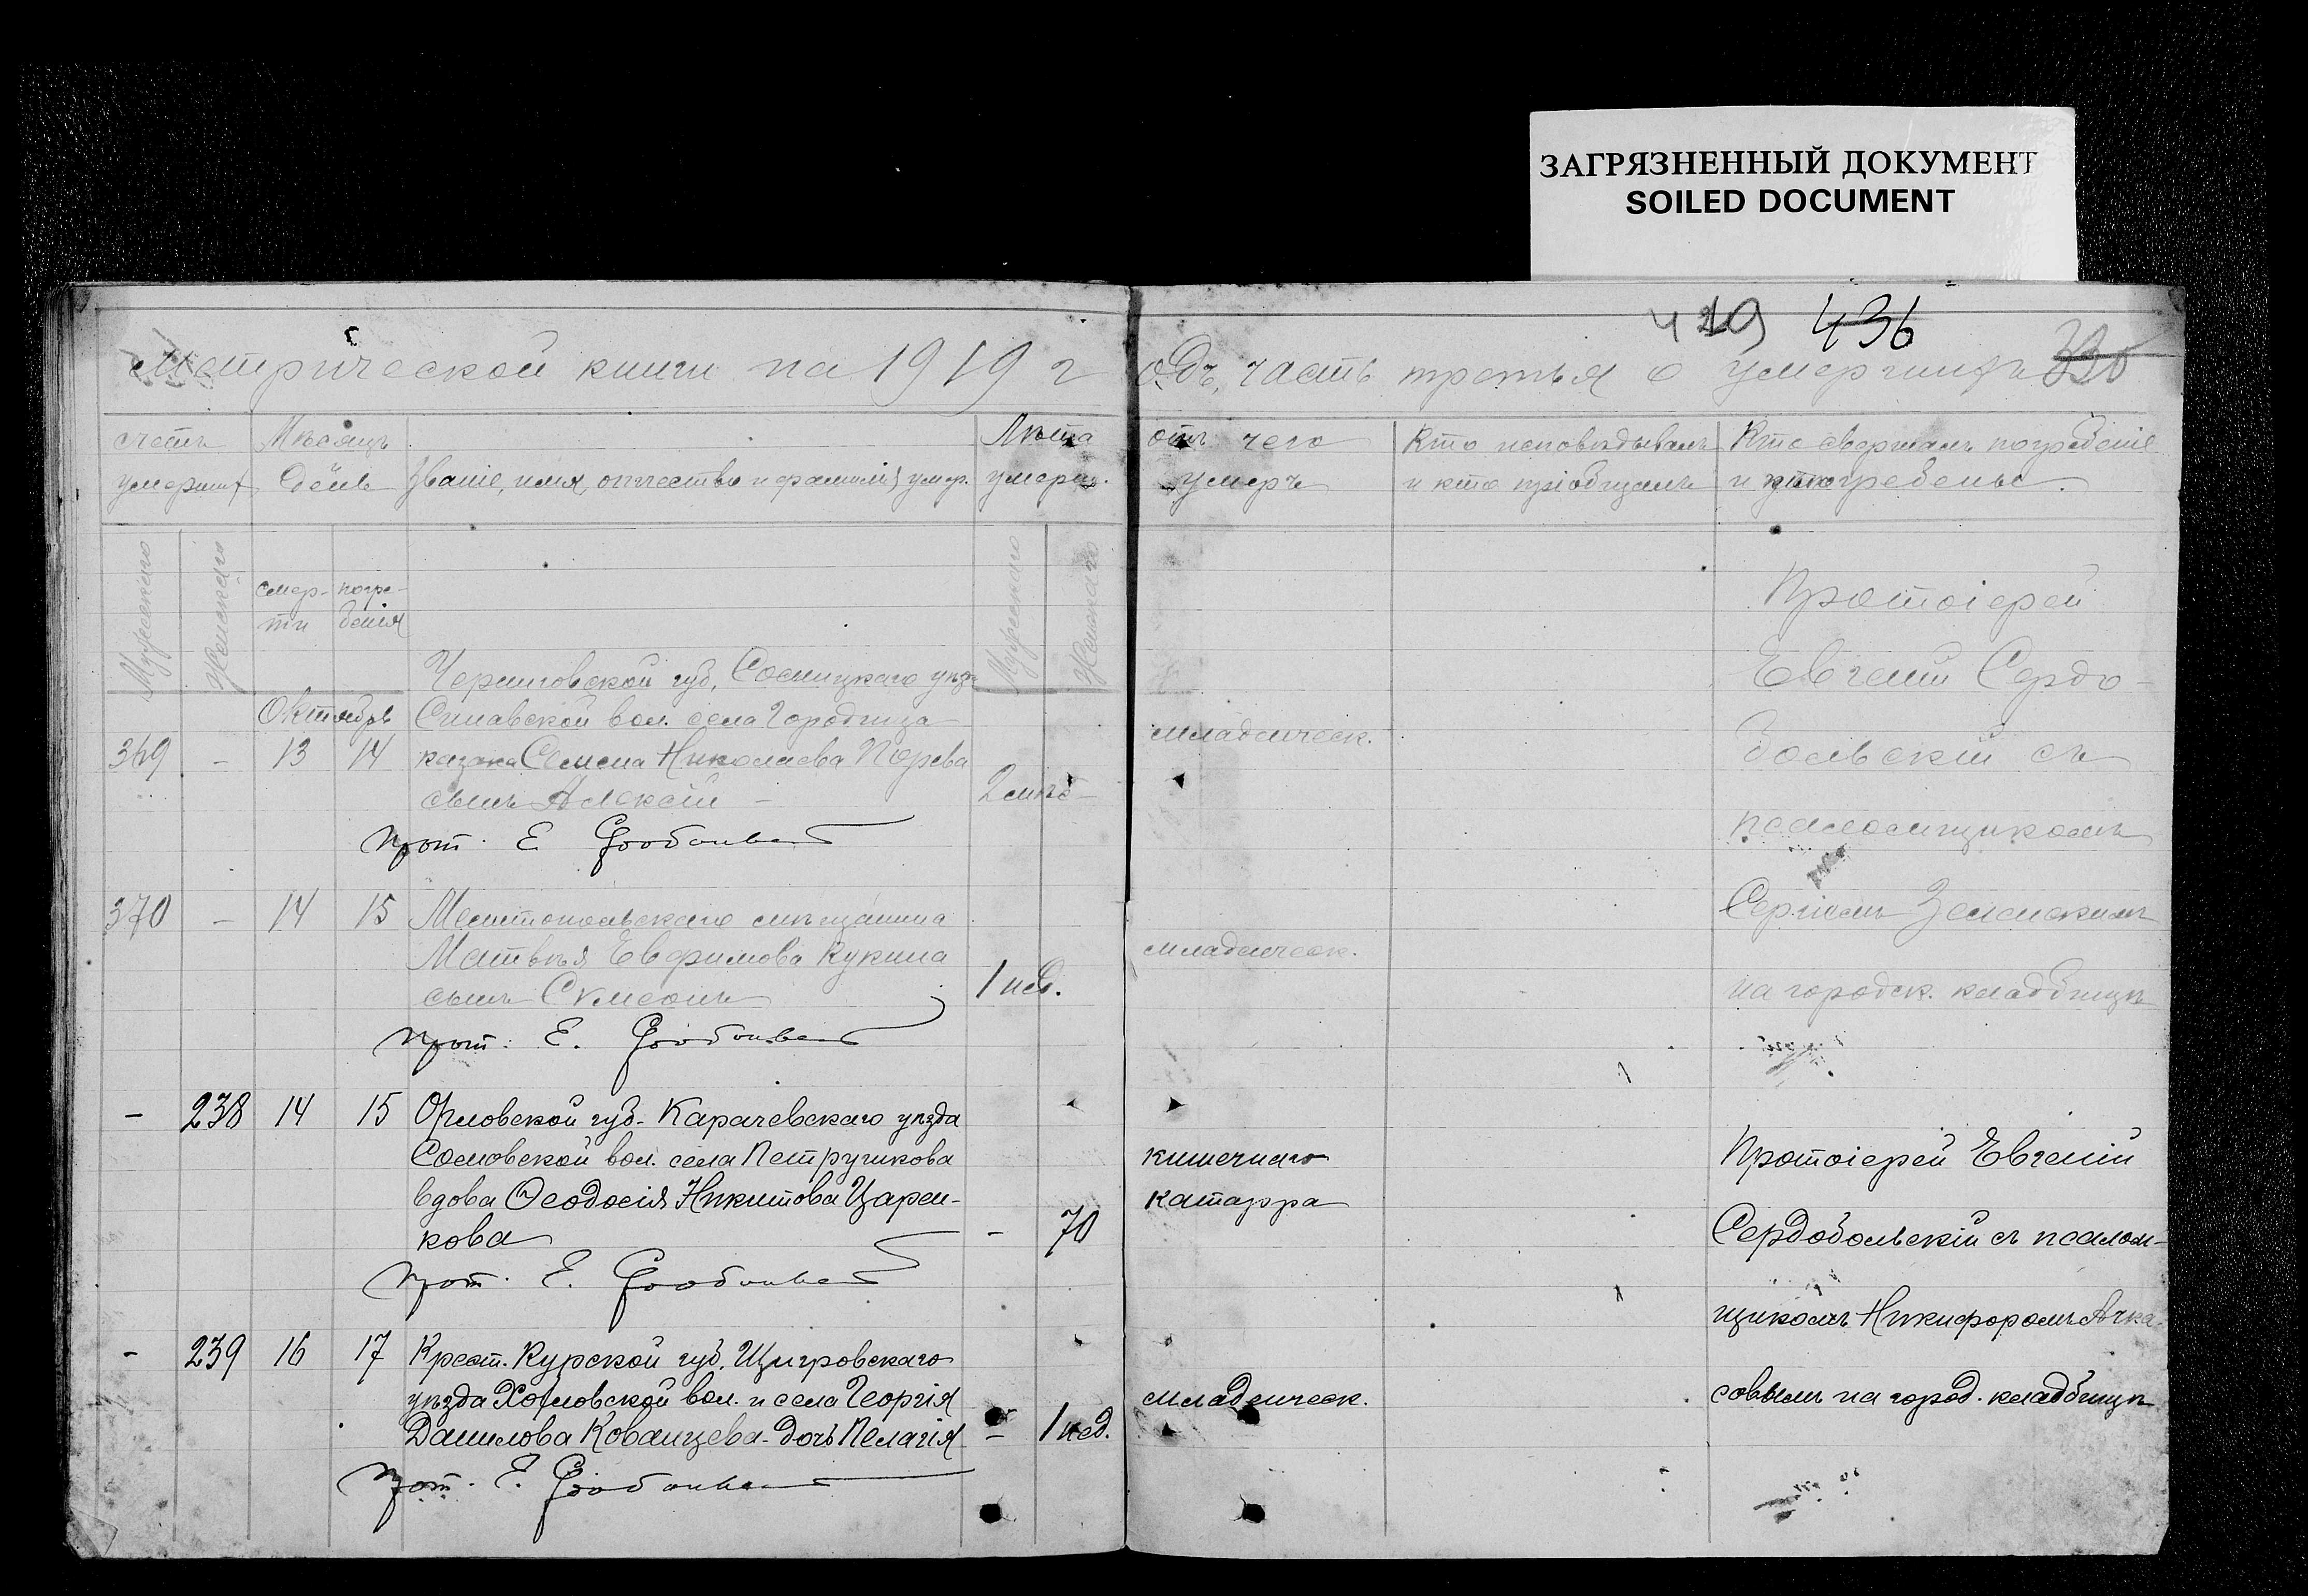 ЗАГРЯЗНЕННЫЙ ДОКУМЕНТ
SOILED DOCUMENT
419 436
335
Метрической книги на 1919 г
одъ, часть третья о умершихъ
счетъ
умерших
Мѣсяцъ
день
Званіе, имя, отчество и фамилія умер.
Лѣта
умерш.
Мужескаго
Женскаго
смер-
ти
погре-
бенія
Мужескаго
Женскаго
отъ чего
умеръ
Кто исповѣдывалъ
и кто пріобщалъ
Кто совершалъ погребеніе
и погребены.
Октябрь
Черниговской губ. Сосницкаго уѣзд.
Синявской вол. села Городища
369 - 13 14 казака Семена Николаева
сынъ Алексѣй - 2 лѣтъ
младенческ.
Прот. Е. Сердобольскій
370 - 14 15 Мелитопольскаго мѣщанина
Матвѣя Евфимова Кукина
сынъ Симеонъ 1 нед.
младенческ.
Прот. Е. Сердобольскій
Протоіерей
Евгеній Сердо-
больскій съ
псаломщикомъ
Сергіемъ
на городск. кладбищѣ
- 238 14 15 Орловской губ. Карачевскаго уѣзда
вол. села Петрушкова
вдова Ѳеодосія Никитова Царен-
кова - 70
кишечнаго
катарра
Прот. Е. Сердобольскій
- 239 16 17 Крест. Курской губ. Щигровскаго
уѣзда Хохловской вол. и села Георгія
Данилова Кованцева дочь Пелагія - 1 нед.
младенческ.
Прот. Е. Сердобольскій
Протоіерей Евгеній
Сердобольскій съ псалом-
щикомъ Никифоромъ Ачка-
совымъ на город. кладбищѣ